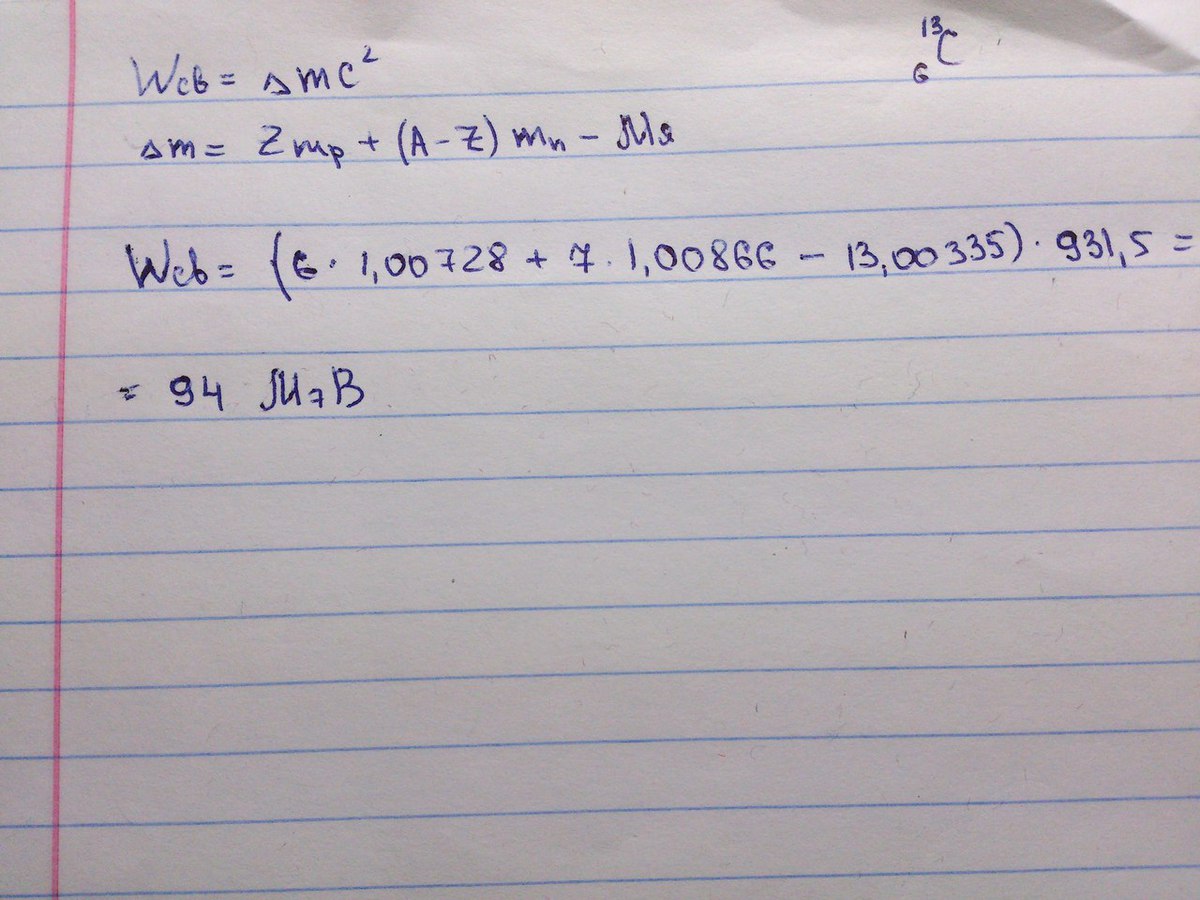 ¹³₆C
Wсв = Δmc²
Δm = Zmp + (A - Z) mn - Mя
Wсв = (6 · 1,00728 + 7 · 1,00866 - 13,00335) · 931,5 =
= 94 МэВ